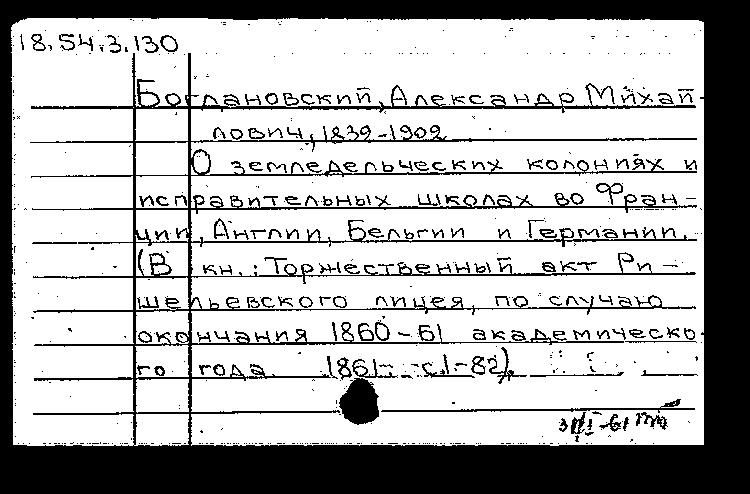 18.54.3.130
Богдановский, Александр Михай-
лович, 1839-1902
О земледельческих колониях и
исправительных школах во Фран-
ции, Англии, Бельгии и Германии.
(В кн.: Торжественный акт Ри-
шельевского лицея, по случаю
окончания 1860-61 академическо-
го года. 1861. с.1-82).